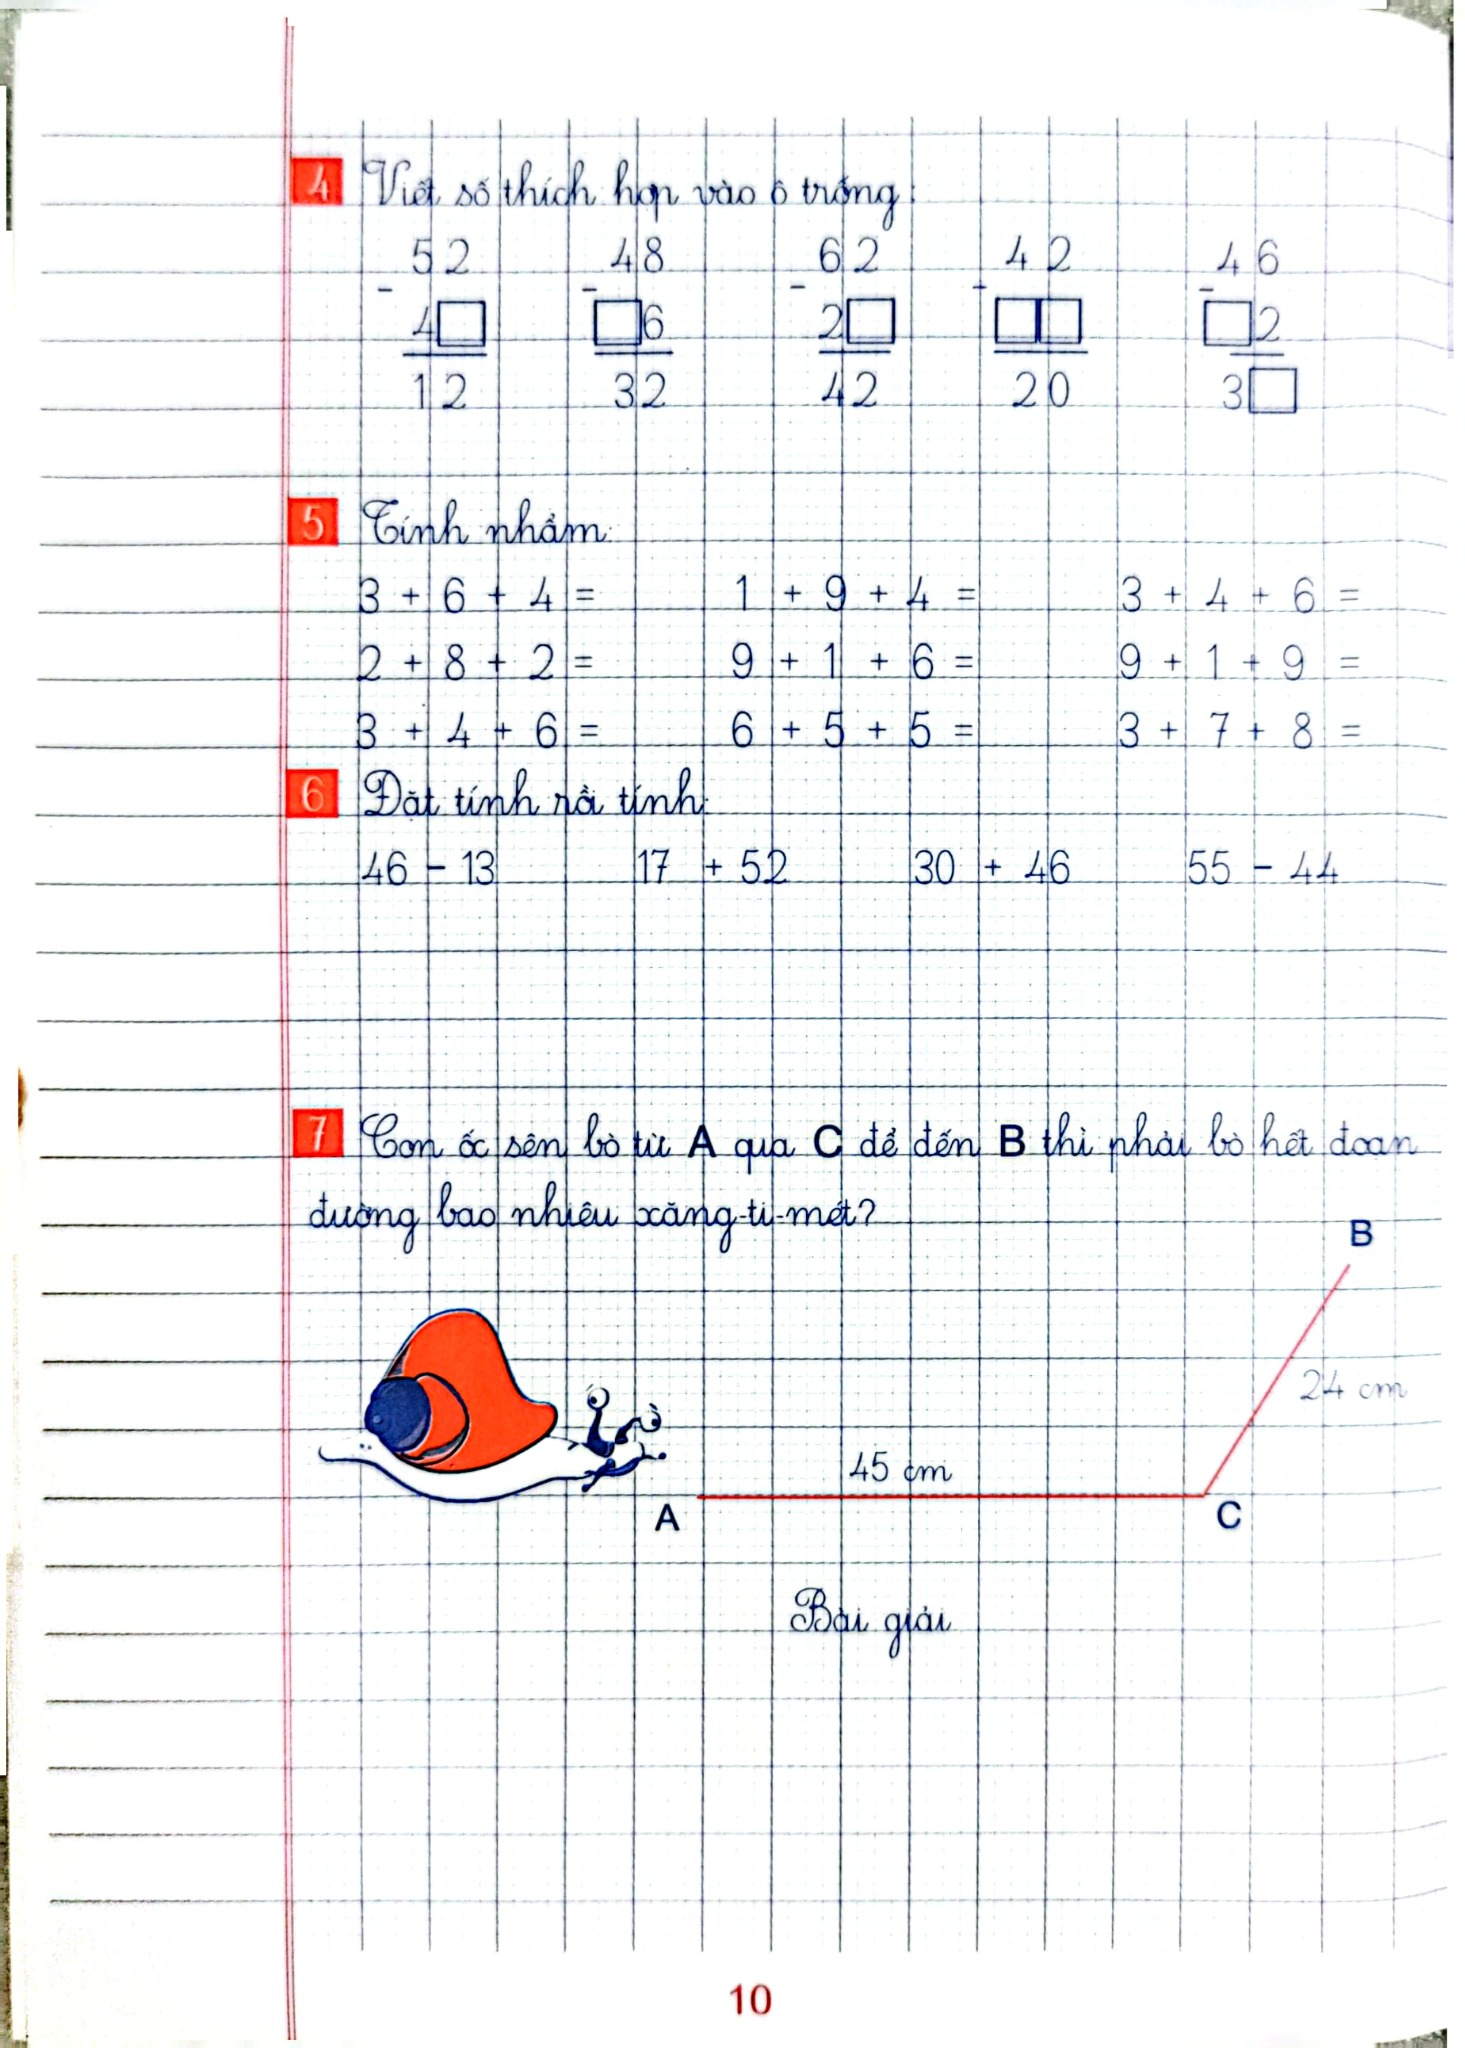 4 Viết số thích hợp vào ô trống:
52 48 62 42 46
- - - - -
4□ □6 2□ □□ □2
12 32 42 20 3□
5 Tính nhẩm:
3 + 6 + 4 = 1 + 9 + 4 = 3 + 4 + 6 =
2 + 8 + 2 = 9 + 1 + 6 = 9 + 1 + 9 =
3 + 4 + 6 = 6 + 5 + 5 = 3 + 7 + 8 =
6 Đặt tính rồi tính:
46 - 13 17 + 52 30 + 46 55 - 44
7 Con ốc sên bò từ A qua C để đến B thì phải bò hết đoạn
đường bao nhiêu xăng-ti-mét?
B
24 cm
45 cm
A C
Bài giải
10